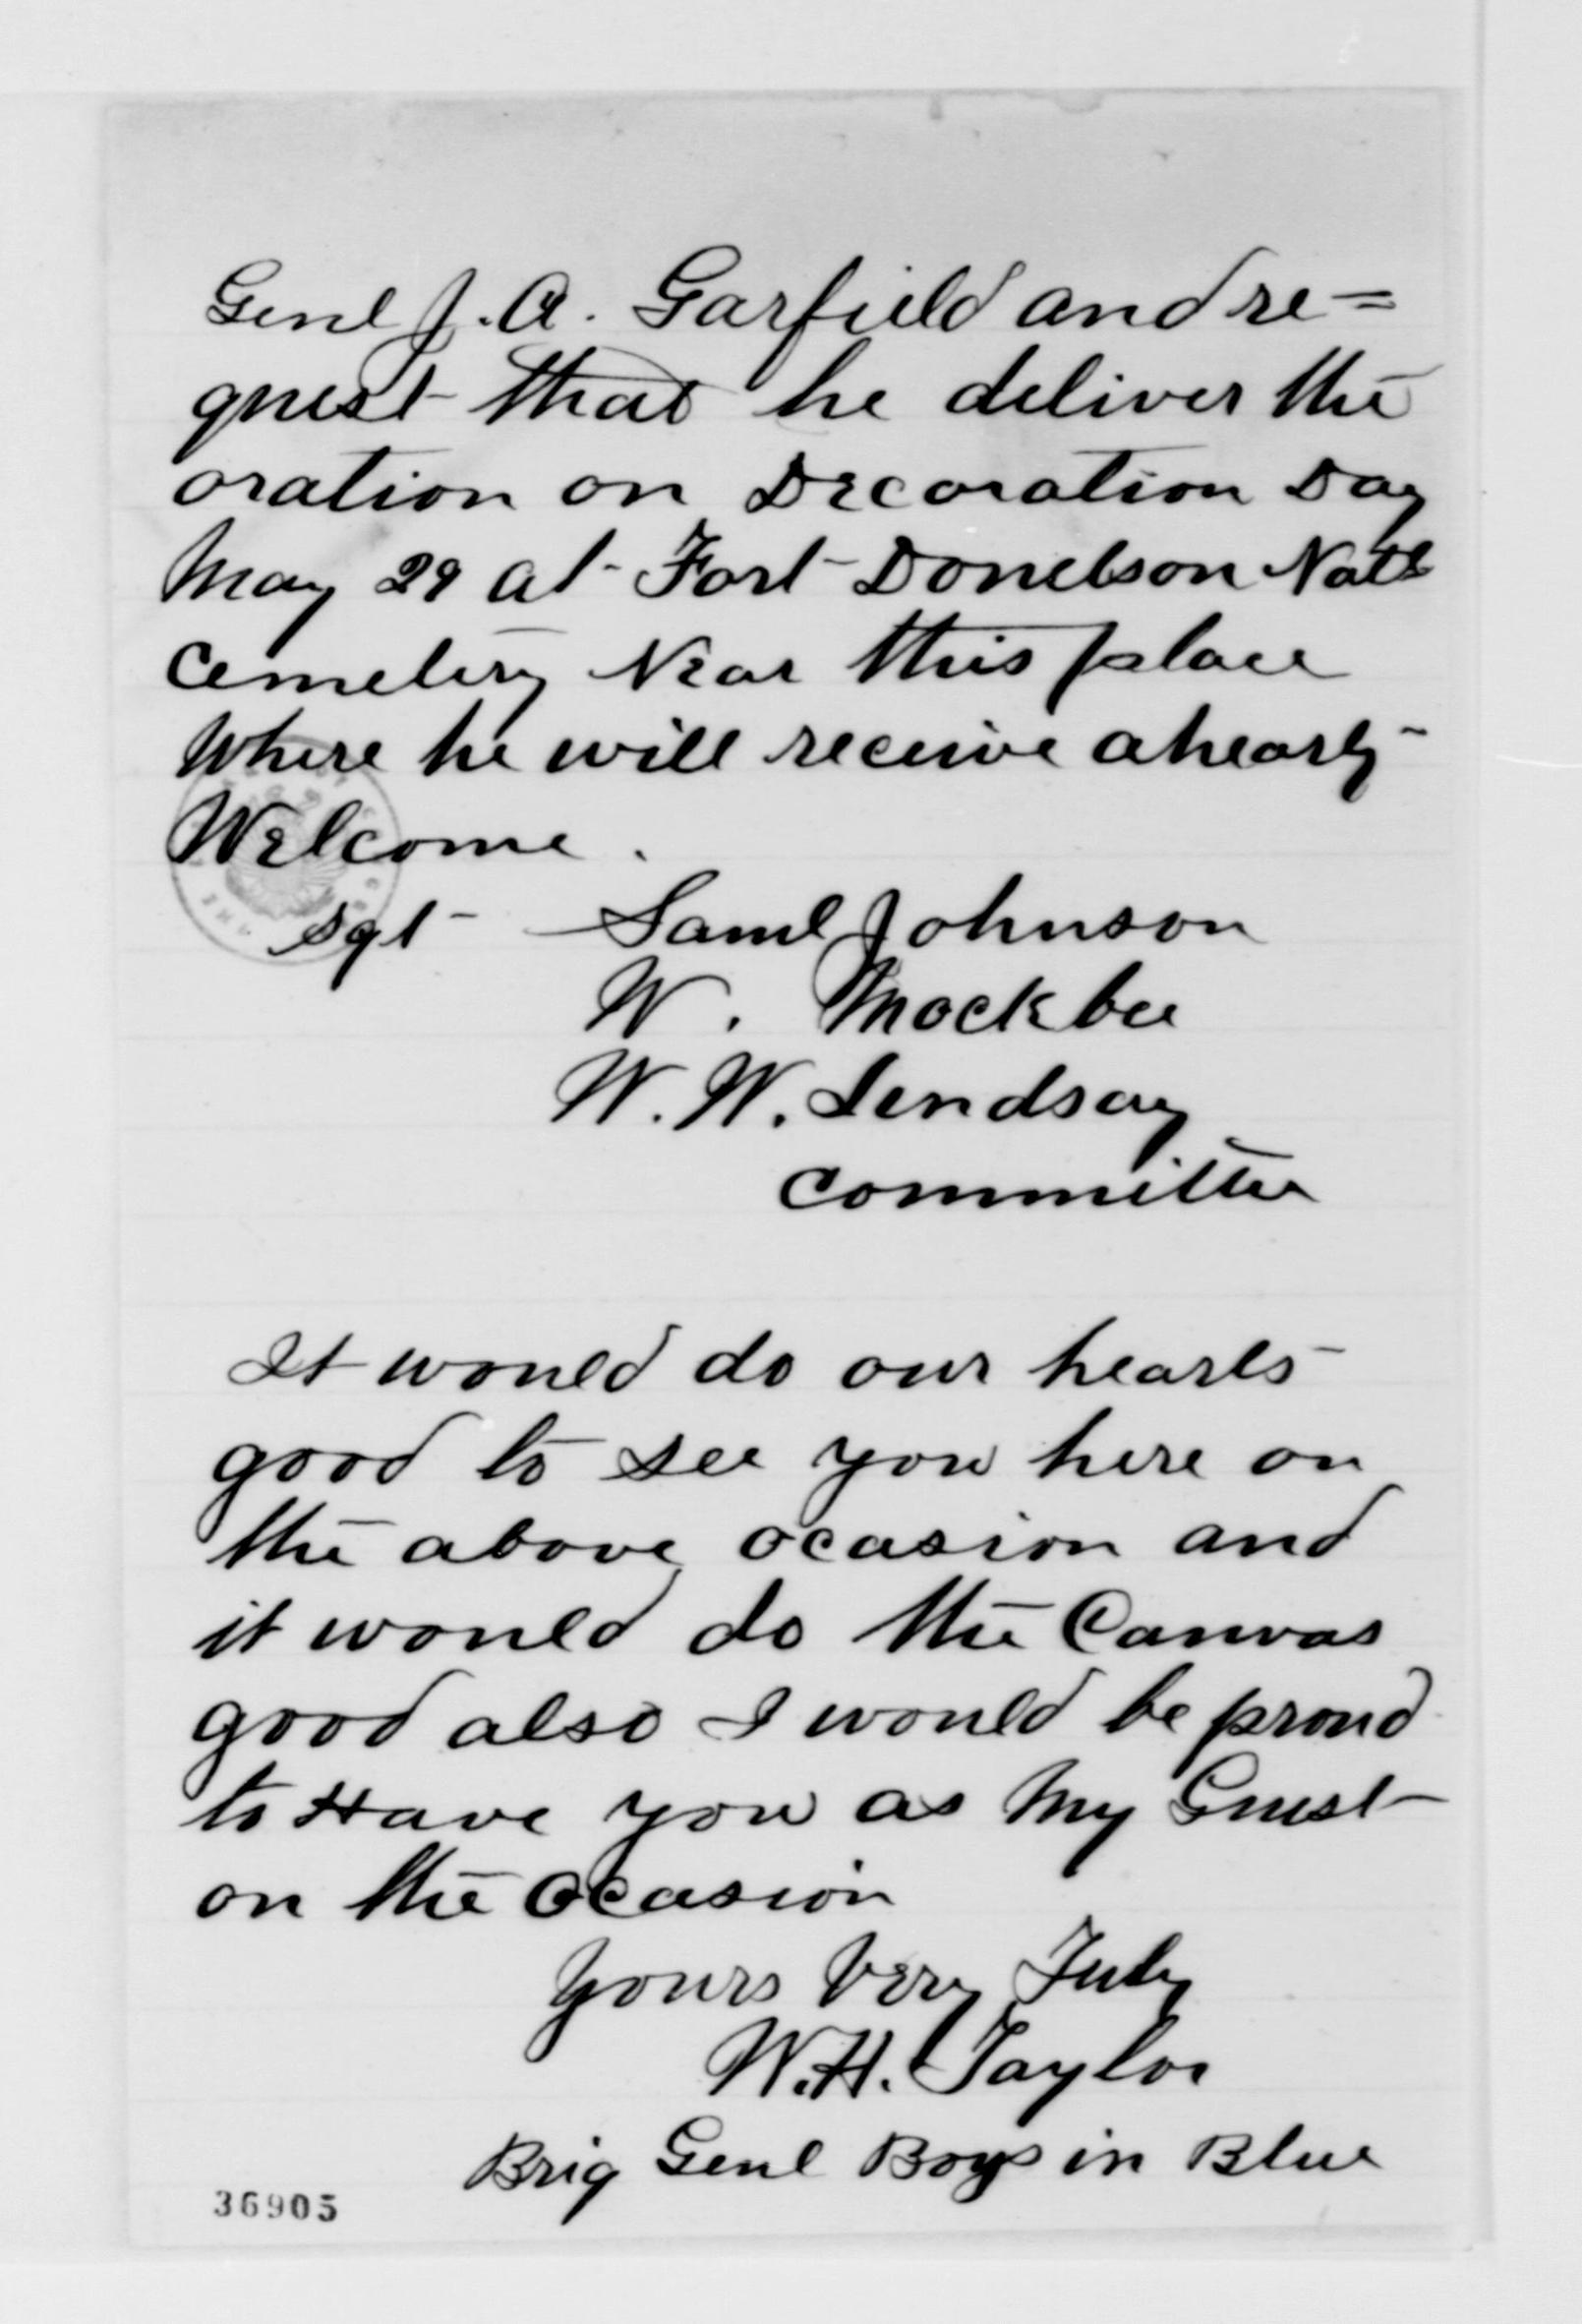 Genl J. A. Garfield and re=
quest that he deliver the
oration on Decoration Day
May 29 at Fort Donelson Natl
Cemetery Near this place
Where he will receive a hearty
Welcome.
Sgt Saml Johnson
W. Mockbee
W. W. Lendsay
Committee
It would do our hearts
good to see you here on
the above ocasion and
it would do the Canvas
good also I would be proud
to Have you as My Guest
on the Ocasion
Yours Very Tuly
W. H. Taylor
Brig Genl Boys in Blue
36905